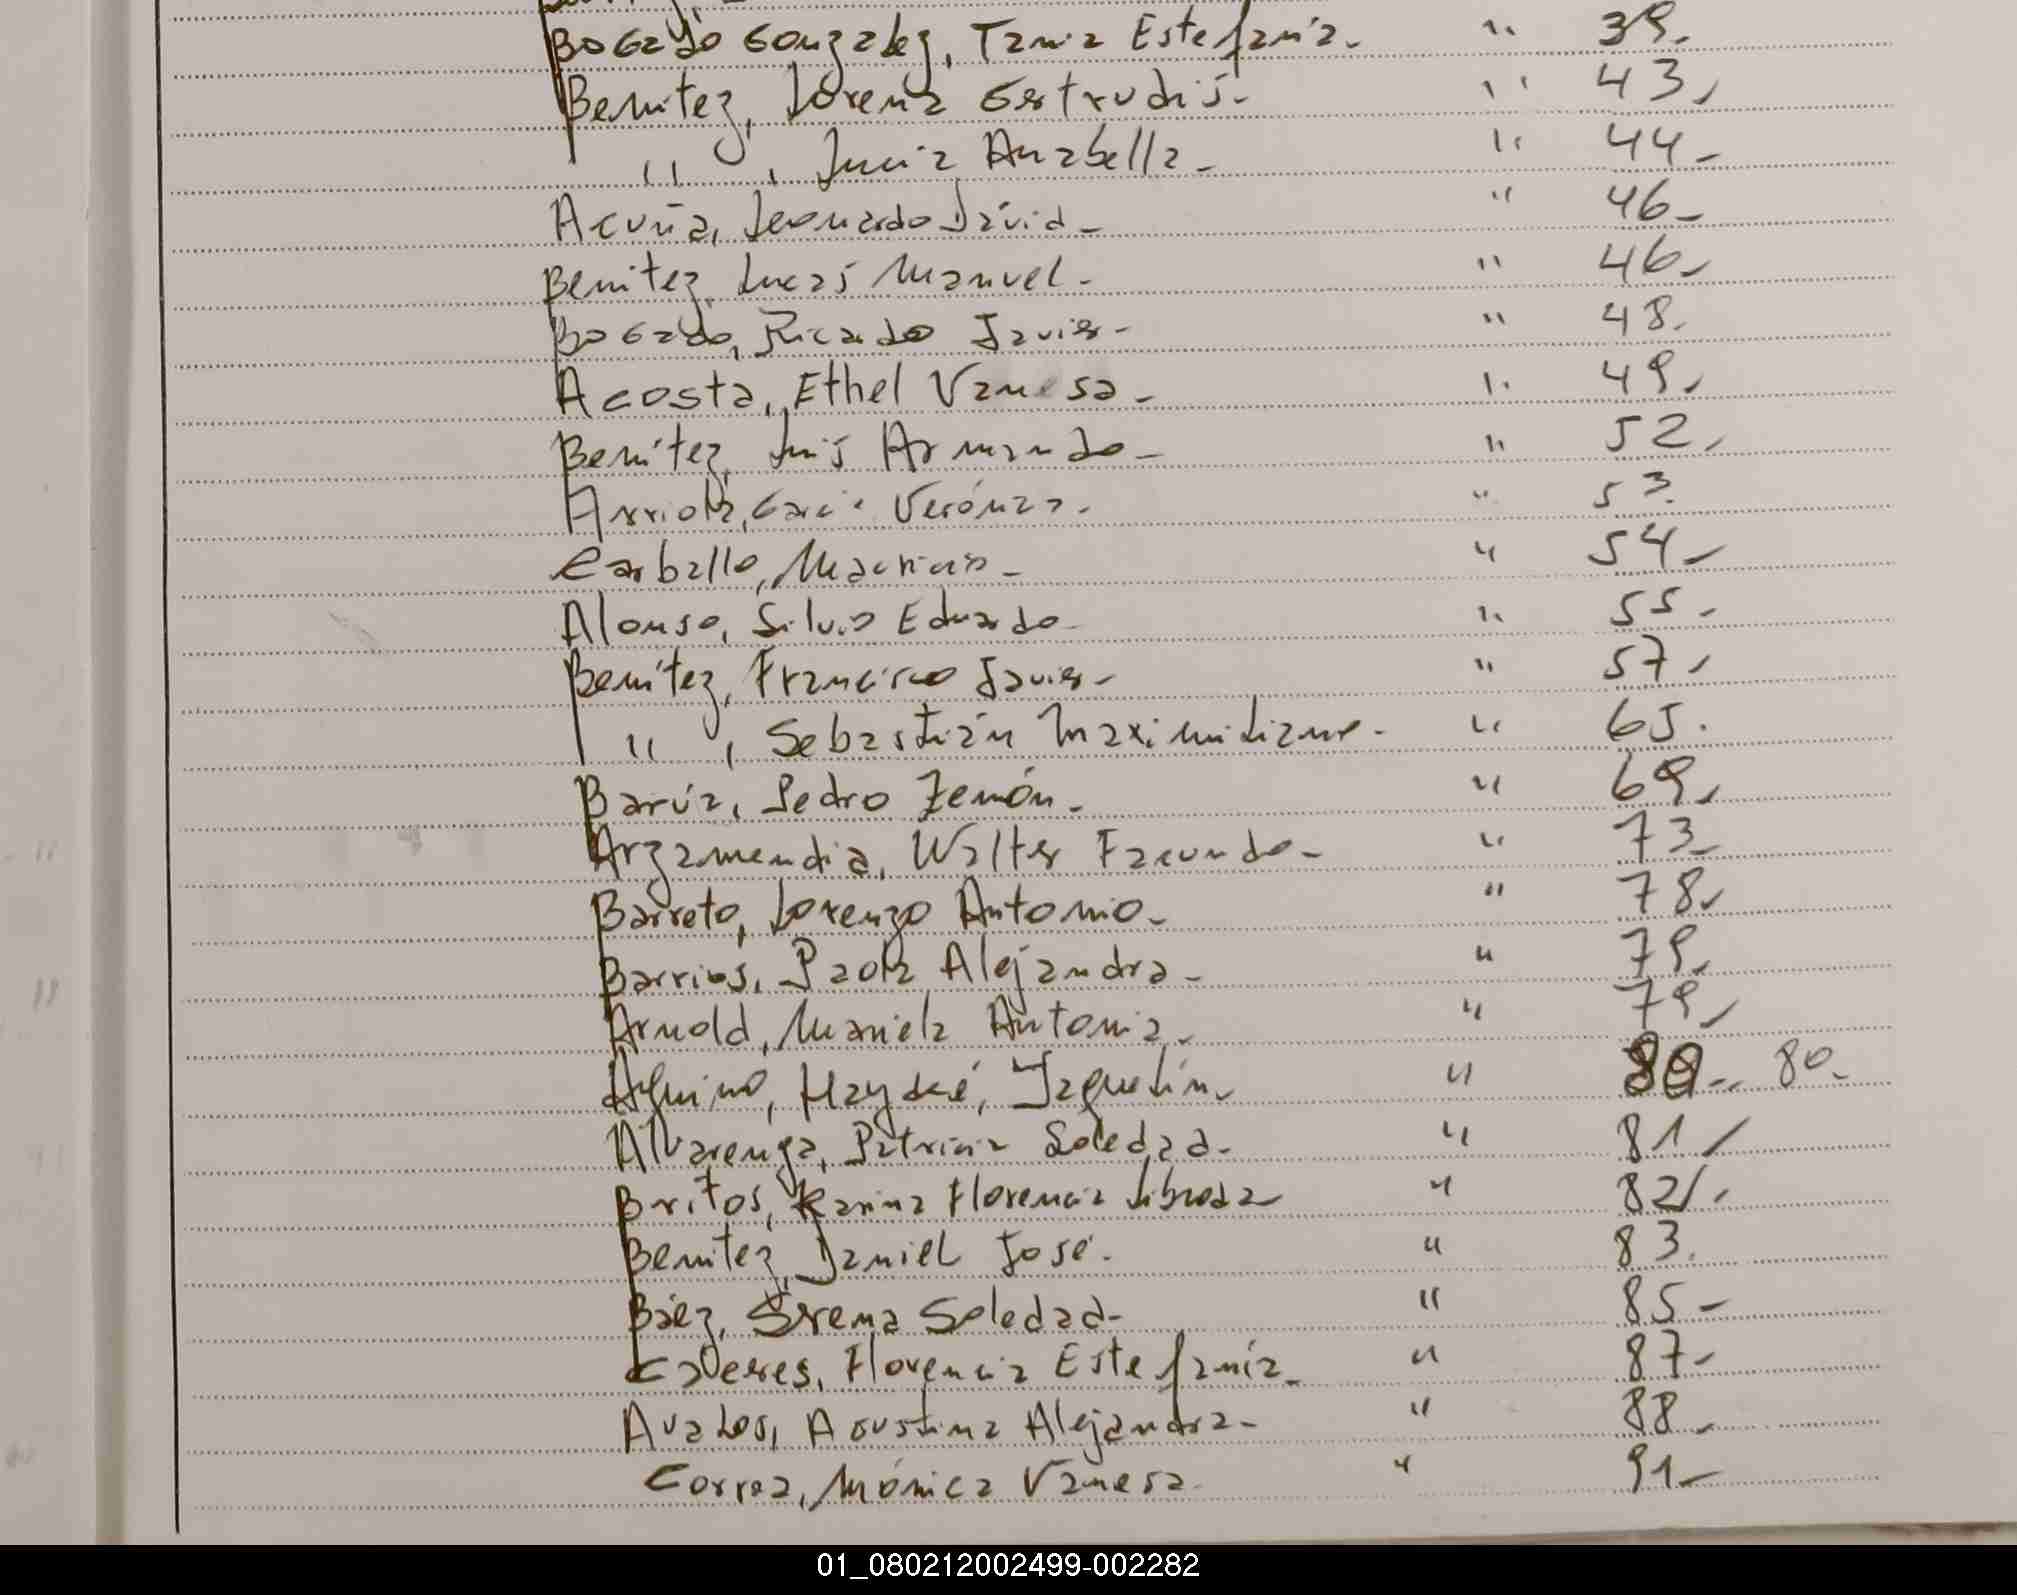 Bogado Gonzalez, Tania Estefanía. " 39.
Benitez, Lorena Gertrudis. " 43.
" , Lucia Anabella. " 44.
Acuña, Leonardo David. " 46.
Benitez, Lucas Manuel. " 46.
Bogado, Ricardo Javier. " 48.
Acosta, Ethel Vanesa. " 49.
Benítez, Luis Armando. " 52.
Arriola, Verónica. " 53.
Carballo, Mauricio. " 54.
Alonso, Silvio Eduardo. " 55.
Benítez, Francisco Javier. " 57.
" , Sebastián Maximiliano. " 65.
Barúa, Pedro Zenón. " 69.
Argamendia, Walter Facundo. " 73.
Barreto, Lorenzo Antonio. " 78.
Barrios, Paola Alejandra. " 79.
Arnold, Mariela Antonia. " 79.
Aquino, Haydeé, Jaquelín. " 80. 80.
Alvarenga, Patricia Soledad. " 81
Britos, Karina Florencia Librada " 82.
Benitez, Daniel José. " 83.
Báez, Soledad. " 85.
Caceres, Florencia Estefanía. " 87.
Avalos, Agustina Alejandra. " 88.
Correa, Mónica Vanesa. " 91.
01_080212002499-002282